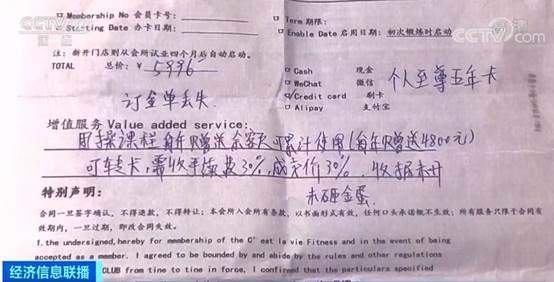 CCTV 2 财经
CCTV.com
□ Membership No 会员卡号:
□ Term 期限:
□ Starting Date 办卡日期:
□ Enable Date 启用日期: 初次锻炼时启动
注: 新开门店则从会所试业四个月后自动启动。
TOTAL 总价: ¥ 5996
□ Cash 现金
个人至尊五年卡
□ WeChat 微信
Credit card 刷卡
□ Alipay 支付宝
订金单丢失.
增值服务 Value added service:
团操课程每年赠送余额可累计使用(每年赠送4800元)
可转卡,需收手续费30%,成交价30%. 收据未开
未砸金蛋
特别声明:
合同一旦签字确认,不得退款,不得转让;本会所入会所有条款,以书面形式有效,任何口头承诺概不生效;所有服务只限于合同有
效期内,一旦过期,即改合同失效。
I. the undersigned, hereby for membership of the C'est la vie Fitness and in the event of being
accepted as a member. I agreed to be bounded by and abide by the rules and other regulations
CLUB from tino to tine in force, I confirmed that the particulars specified
经济信息联播